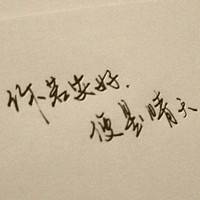 你若安好.
便是晴天